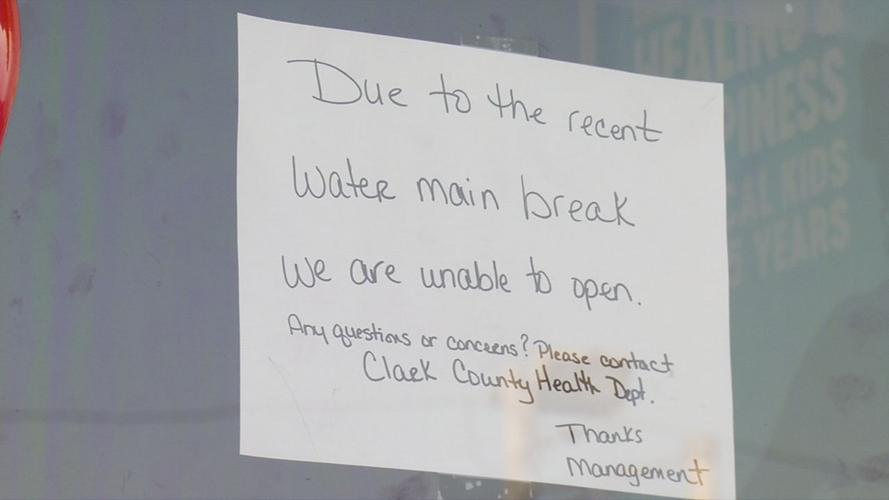 Due to the recent
Water main break
We are unable to open.
Any questions or concerns? Please contact
Clark County Health Dept.
Thanks
Management
HEALING &
PINESS
CAL KIDS
YEARS